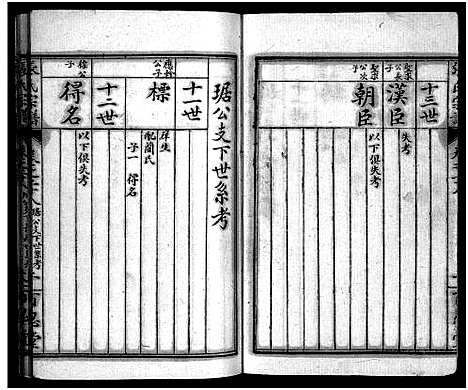 十三世
聖求公長子
漢臣
失考
聖求公次子
朝臣
以下俱失考
琚公支下世系考
十一世
應科公子
標
庠生
配蘭氏
子一 得名
十二世
標公子
得名
以下俱失考
張氏宗譜